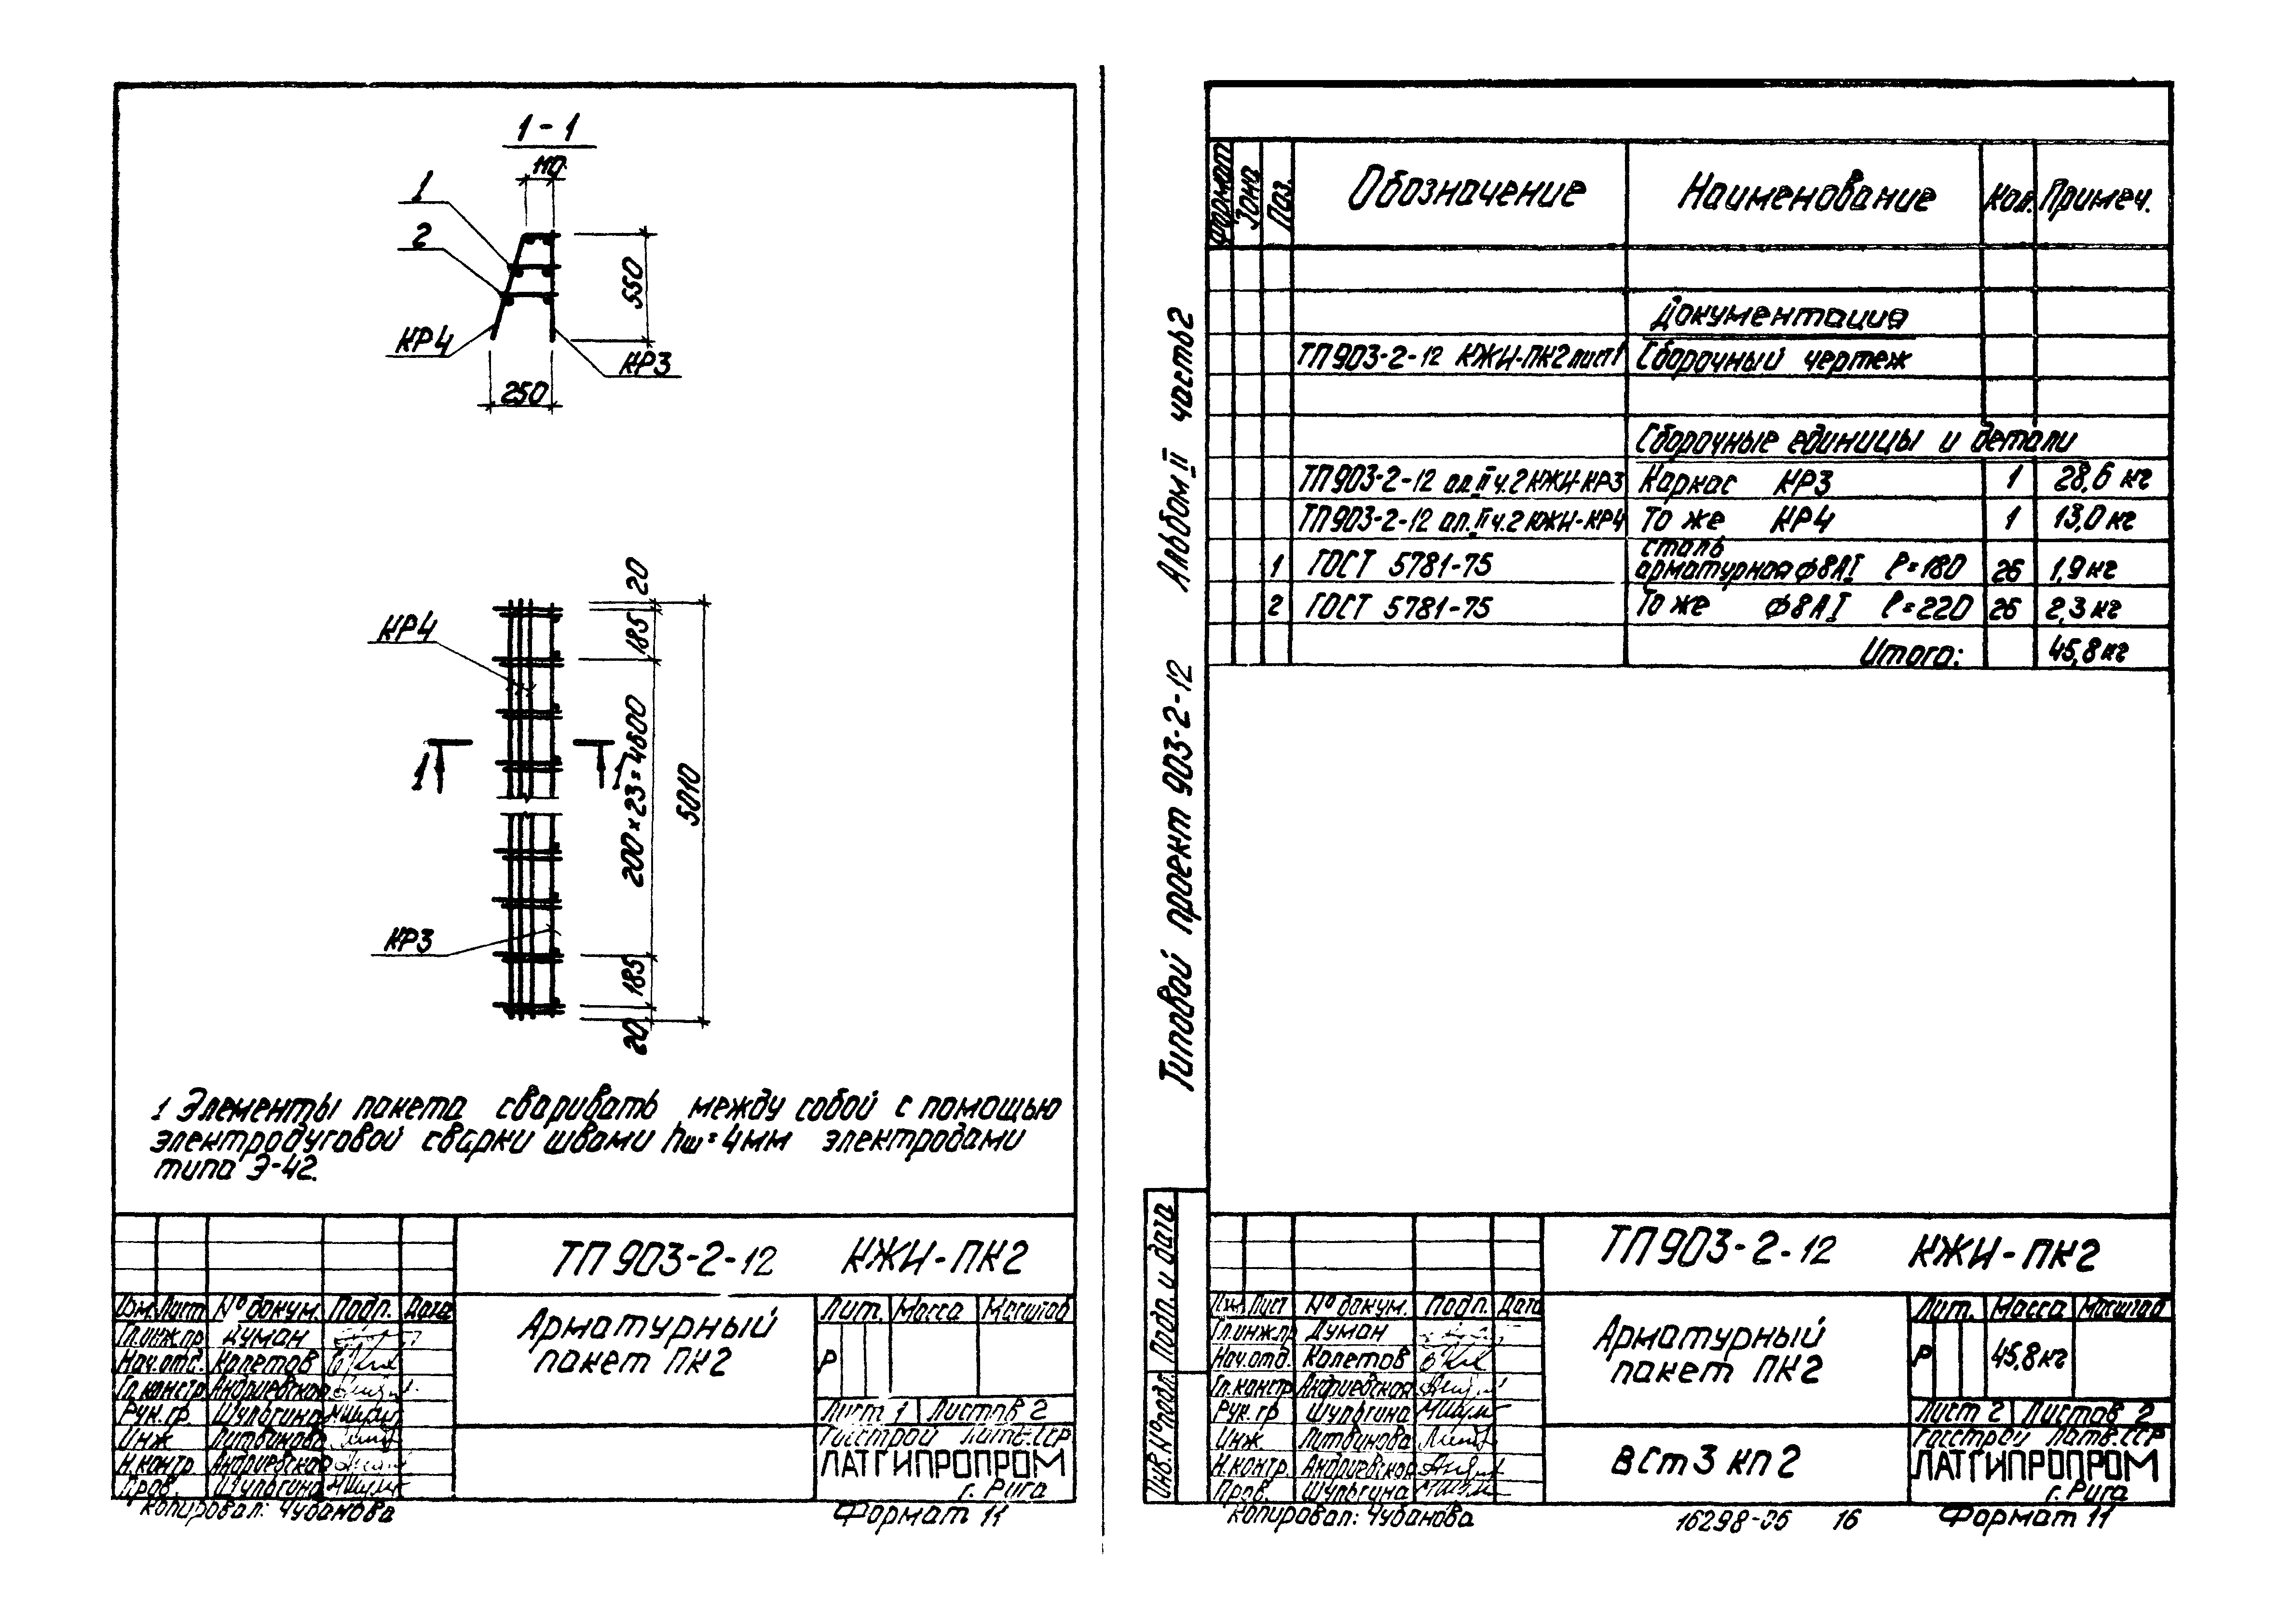 1-1
110
1
2
550
КР4
КР3
250
20
КР4
185
1
1
200×23=4600
5010
КР3
185
20
1 Элементы пакета сваривать между собой с помощью
электродуговой сварки швами hш=4мм электродами
типа Э-42.
ТП 903-2-12 КЖИ-ПК2
Изм. Лист № докум. Подп. Дата
Арматурный
пакет ПК2
Лит. Масса Масштаб
Гл.инж.пр Думан
Нач.отд. Калетов
Р
Гл.констр Андриевская
Рук.гр. Шульгина
Лист 1 Листов 2
Инж Литвинова
Госстрой Латв.ССР
Н.контр Андриевская
ЛАТГИПРОПРОМ
Пров. Шульгина
г. Рига
Копировал: Чубанова
Формат 11
Типовой проект 903-2-12 Альбом II часть 2
Формат Зона Поз. Обозначение Наименование Кол. Примеч.
Документация
ТП903-2-12 КЖИ-ПК2 лист1 Сборочный чертеж
Сборочные единицы и детали
ТП903-2-12 ал.II ч.2 КЖИ-КР3 Каркас КР3 1 28,6 кг
ТП903-2-12 ал.II ч.2 КЖИ-КР4 То же КР4 1 13,0 кг
сталь
1 ГОСТ 5781-75 арматурная ф8АI ℓ=180 26 1,9 кг
2 ГОСТ 5781-75 То же ф8АI ℓ=220 26 2,3 кг
Итого: 45,8 кг
Инв.№ подл. Подп. и дата
ТП 903-2-12 КЖИ-ПК2
Изм. Лист № докум. Подп. Дата
Арматурный
пакет ПК2
Лит. Масса Масштаб
Гл.инж.пр Думан
Нач.отд. Калетов
Р 45,8 кг
Гл.констр Андриевская
Рук.гр Шульгина
Лист 2 Листов 2
Инж. Литвинова
ВСт3 кп2
Госстрой Латв.ССР
Н.контр. Андриевская
ЛАТГИПРОПРОМ
Пров. Шульгина
г. Рига
Копировал: Чубанова
16298-06 16
Формат 11